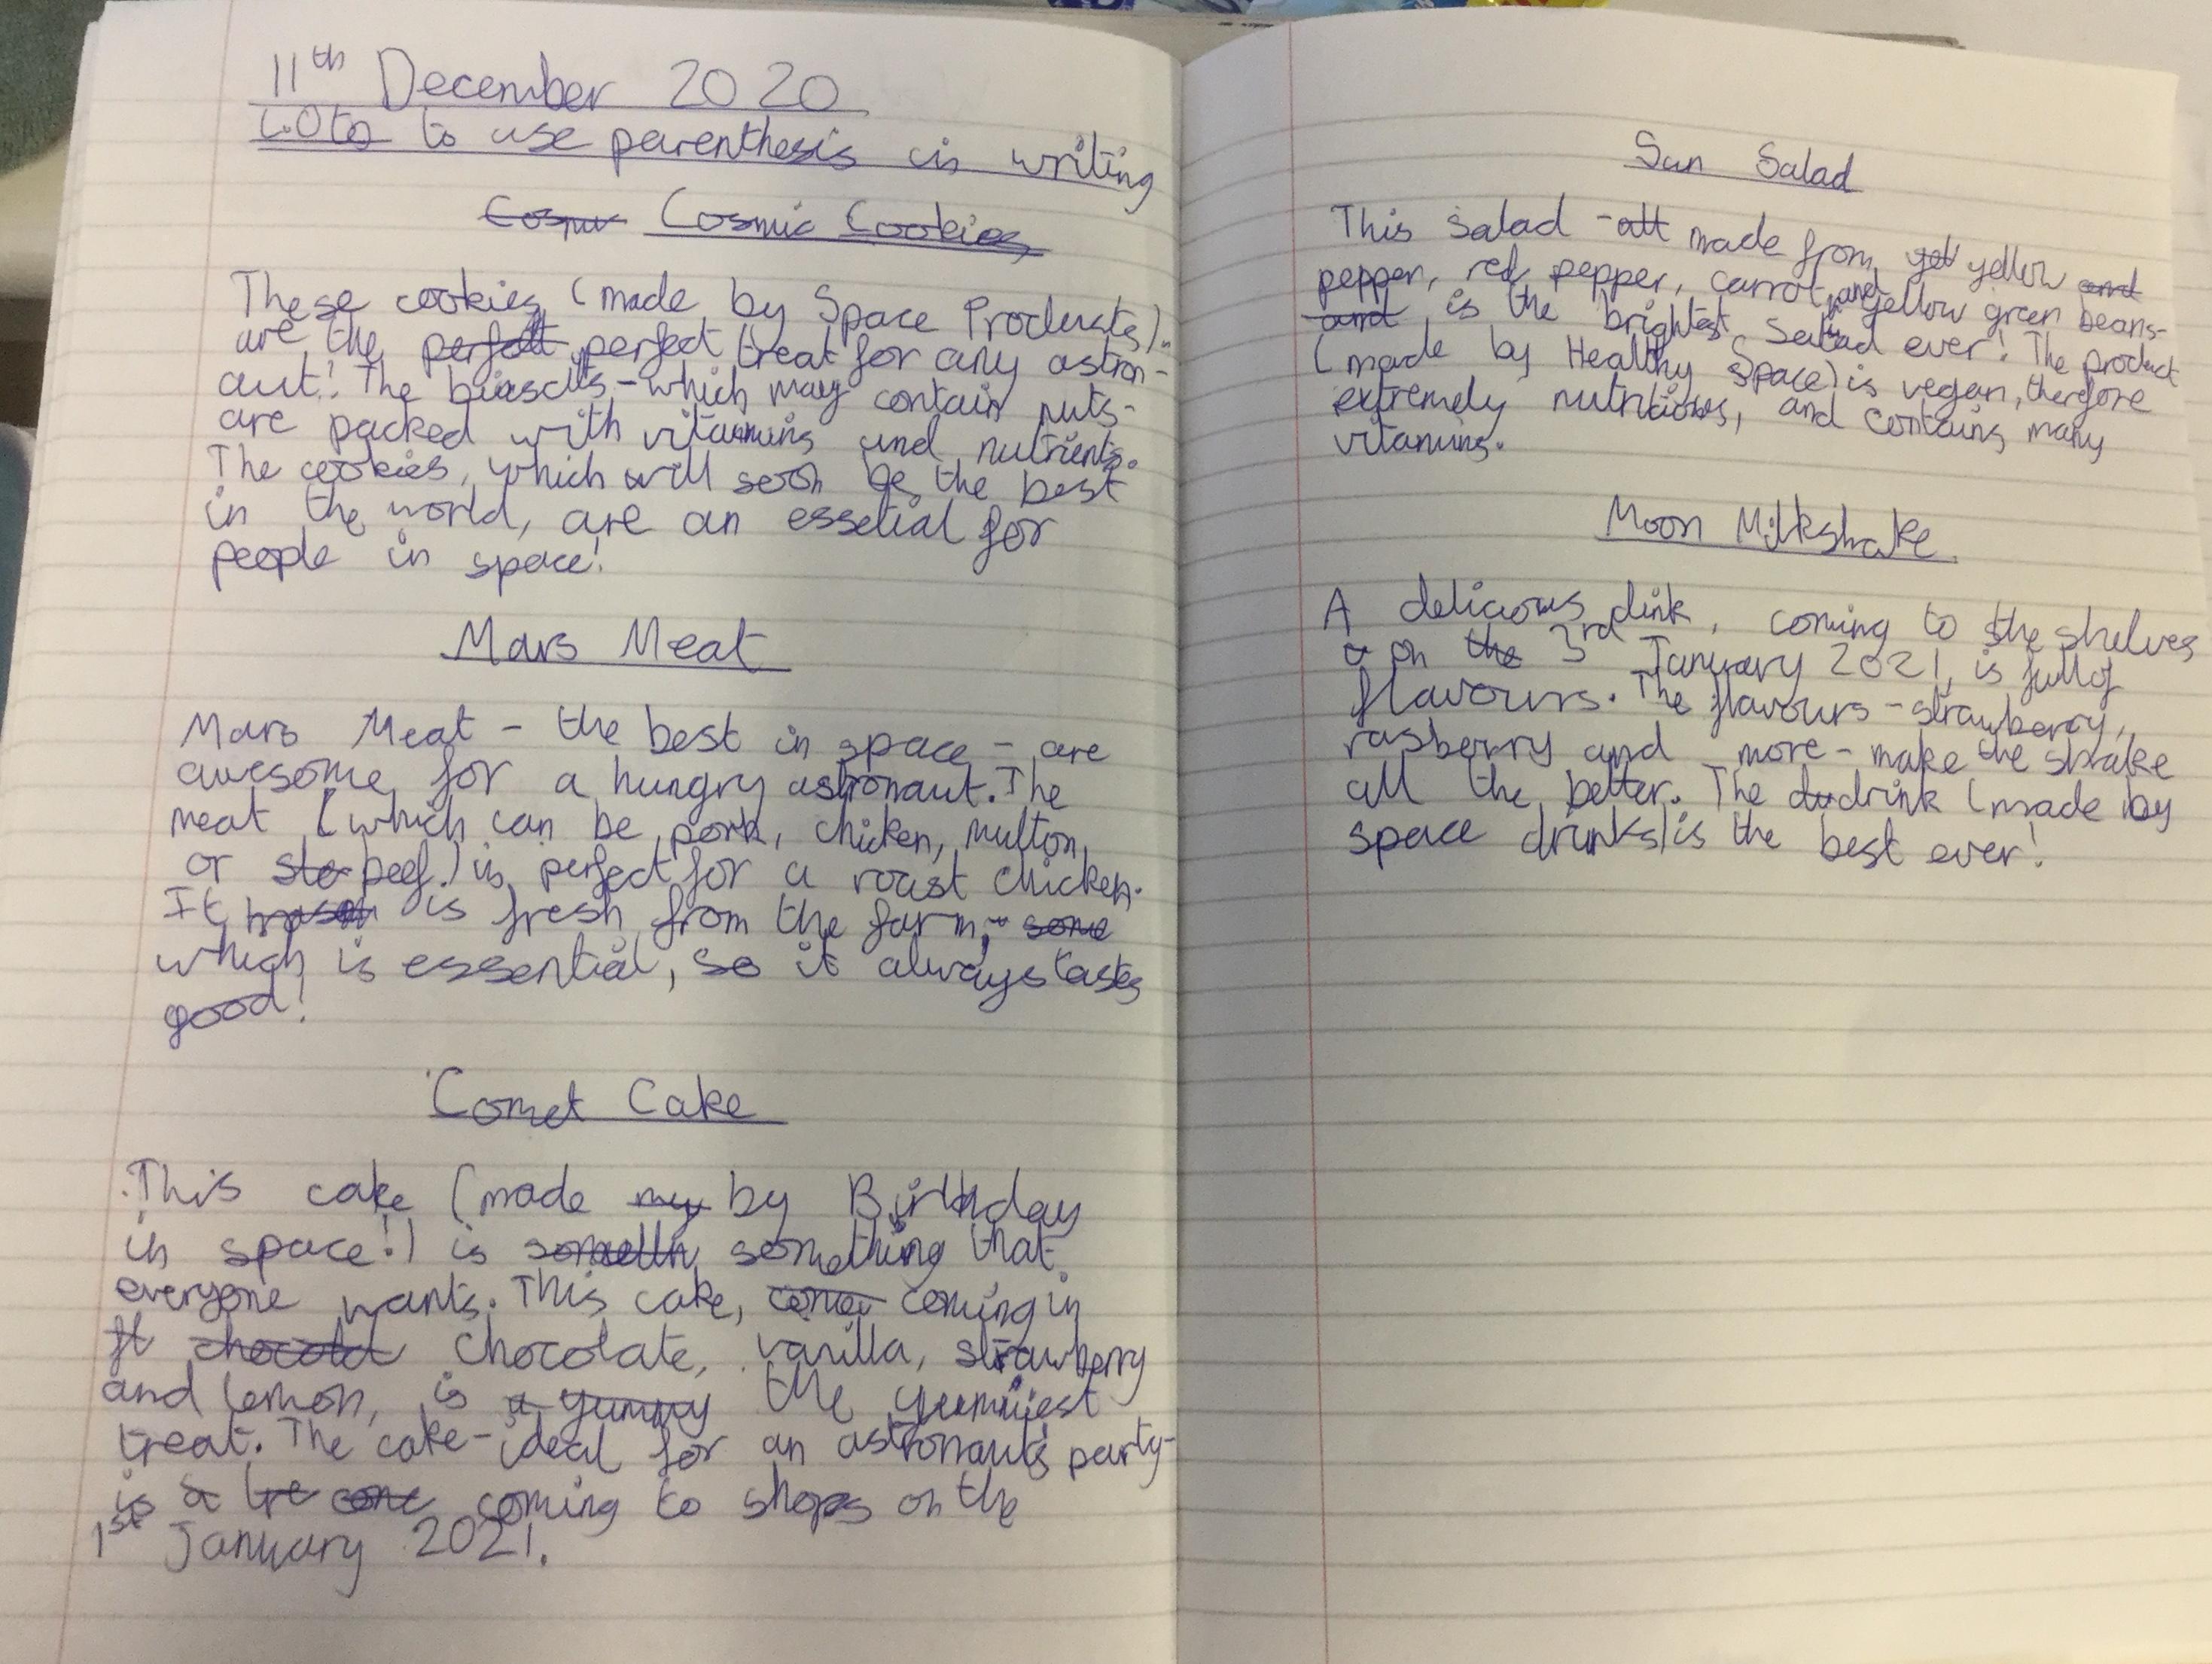 11th December 2020
L.O to to use parenthesis in writing
Cosmic Cookies
These cookies (made by Space Products)
are the perfect treat for any astron-
aut! The biascuts - which may contain nuts-
are packed with vitamins and nutrients.
The cookies, which will soon be the best
in the world, are an essetial for
people in space!
Mars Meat
Mars Meat - the best in space - are
awesome for a hungry astronaut. The
meat (which can be pork, chicken, mutton
or beef) is perfect for a roast chicken.
It is fresh from the farm,
which is essential, so it always tastes
good!
Comet Cake
This cake (made by Birthday
in space!) is something that
everyone wants. This cake, coming in
chocolate, vanilla, strawberry
and lemon, is the yummiest
treat. The cake - ideal for an astronauts party-
is coming to shops on the
1st January 2021.
Sun Salad
This salad - made from yellow
pepper, red pepper, carrot, and yellow green beans-
is the brightest salad ever! The product
(made by Healthy Space) is vegan, therefore
extremely nutritious, and contains many
vitamins.
Moon Milkshake
A delicious dink, coming to the shelves
on 3rd January 2021, is full of
flavours. The flavours - strawberry,
rasberry and more - make the shake
all the better. The drink (made by
space drinks) is the best ever!